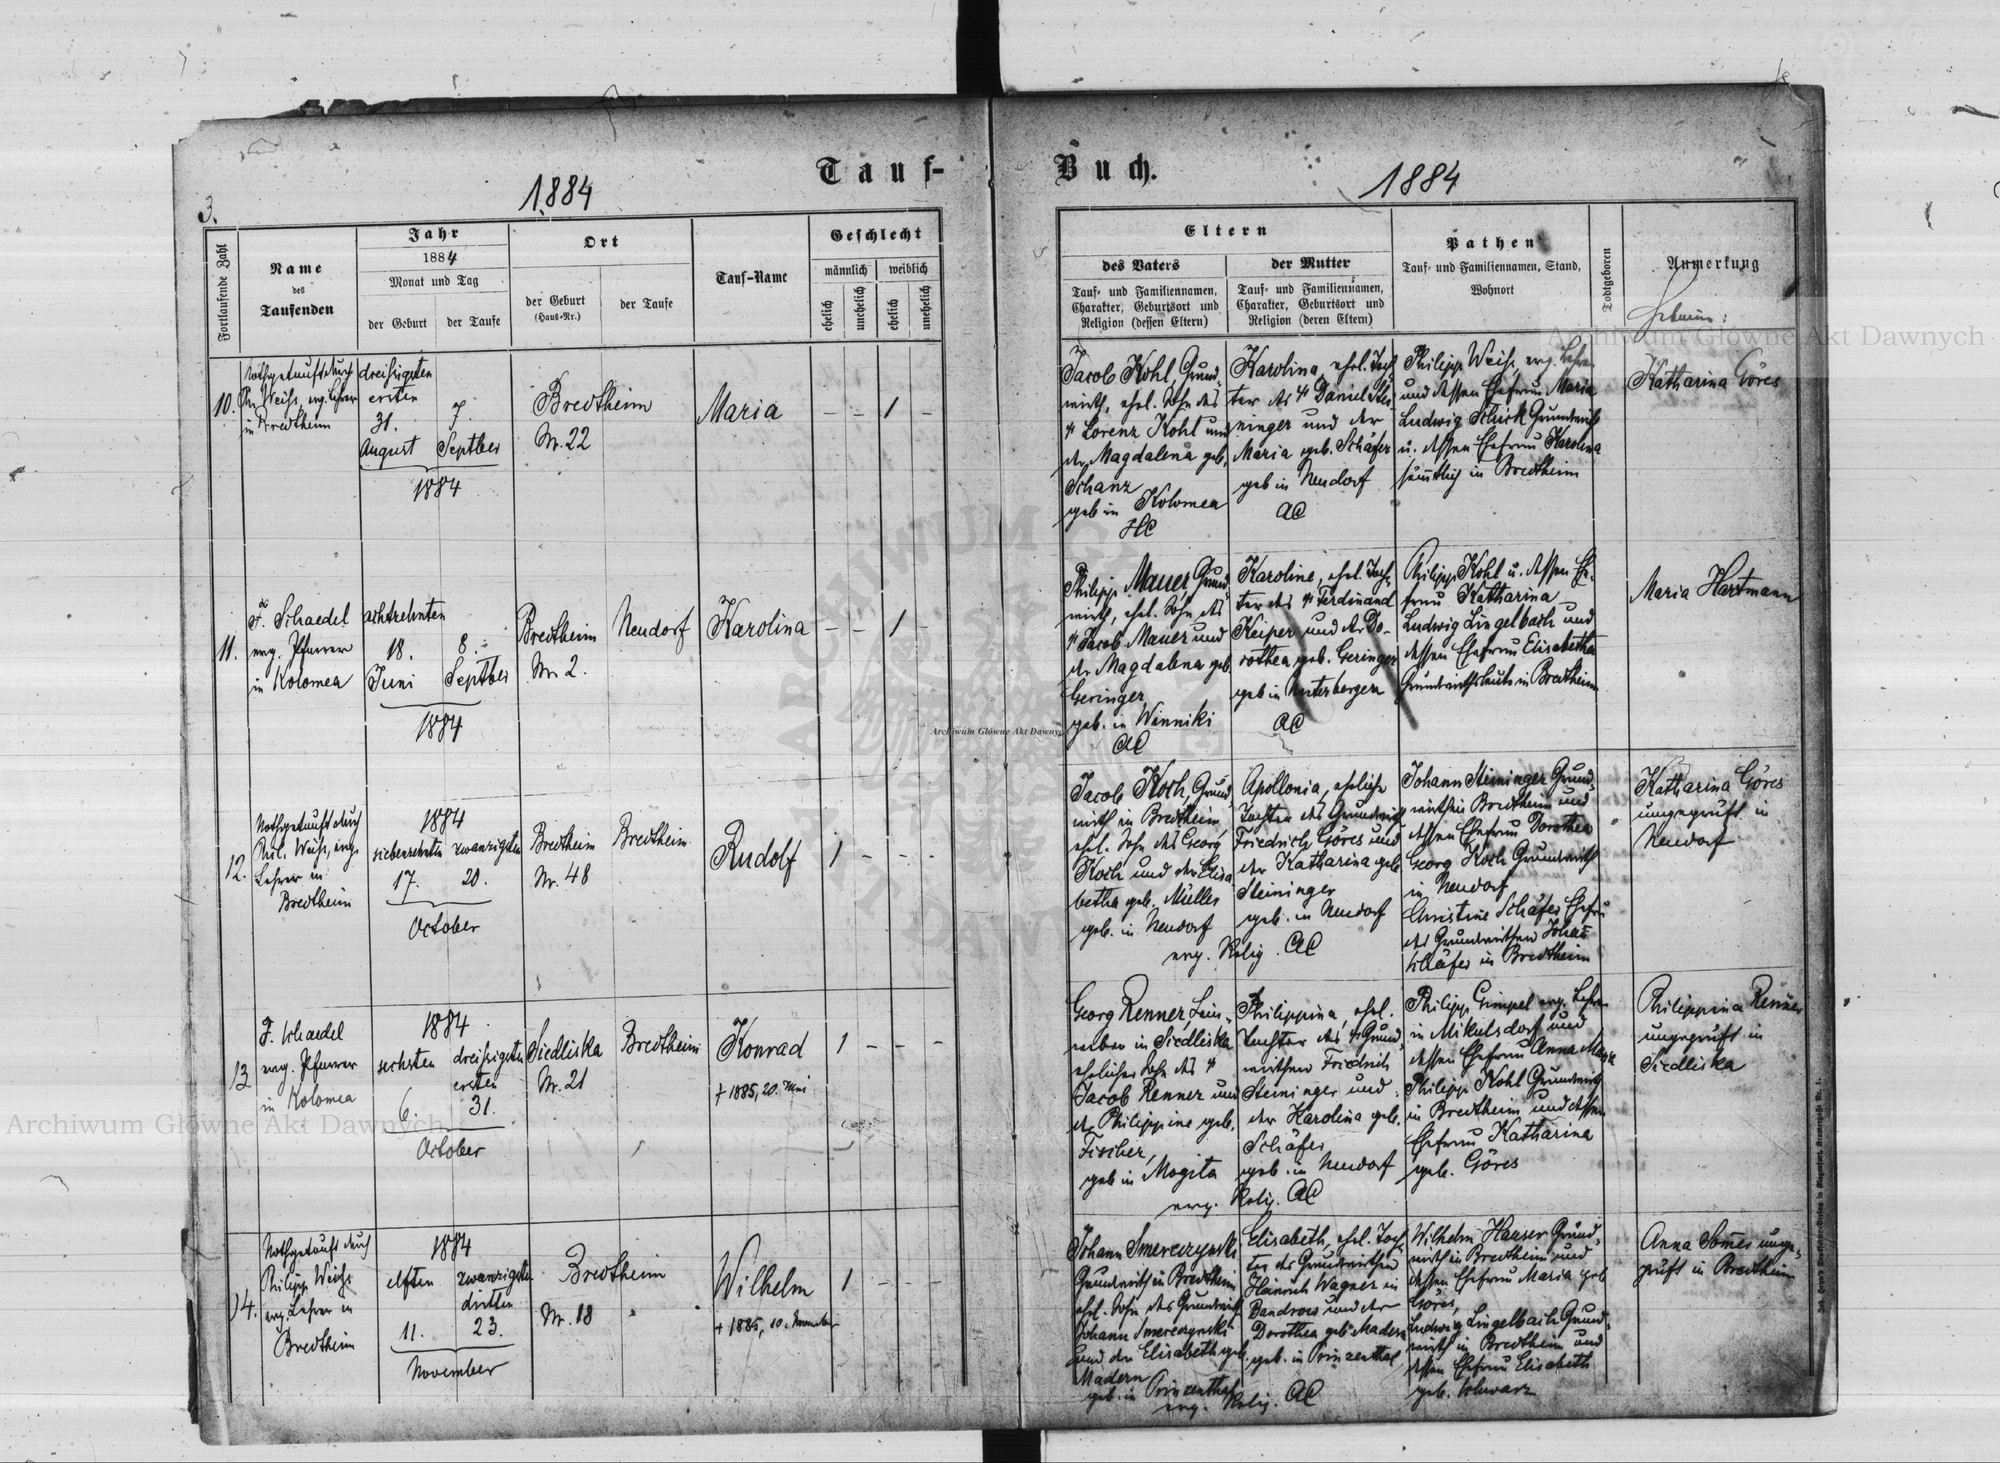 Tauf-
Buch.
1884
1884
3.
Fortlaufende Zahl
Name
des
Taufenden
Jahr
1884
Monat und Tag
der Geburt
der Taufe
Ort
der Geburt
(Haus-Nr.)
der Taufe
Tauf-Name
Geschlecht
männlich
weiblich
ehelich
unehelich
ehelich
unehelich
Eltern
des Vaters
Tauf- und Familiennamen,
Charakter, Geburtsort und
Religion (dessen Eltern)
der Mutter
Tauf- und Familiennamen,
Charakter, Geburtsort und
Religion (deren Eltern)
Pathen
Tauf- und Familiennamen, Stand,
Wohnort
Todtgeboren
Anmerkung
10.
Nothgetauft durch
Ph. Weihs, evg. Lehrer
in Bredtheim
dreisigsten
ersten
31.
August
7.
Septber
1884
Bredtheim
Nr. 22
Maria
1
Jacob Kohl, Grund-
wirth, ehel. Sohn des
† Lorenz Kohl und
der Magdalena geb.
Schanz
geb in Kolomea
HC
Karolina, ehel. Toch-
ter des † Daniel Stei-
ninger und der
Maria geb. Schäfer
geb in Neudorf
AC
Philipp Weihs, evg. Lehrer
und dessen Ehefrau Maria
Ludwig Schick Grundwirth
u. dessen Ehefrau Karolina
sämtlich in Bredtheim
Katharina Göres
11.
F. Schaedel
evg. Pfarrer
in Kolomea
achtzehnten
18.
Juni
8.
Septber
1884
Bredtheim
Nr. 2.
Neudorf
Karolina
1
Philipp Mauer, Grund-
wirth, ehel. Sohn des
† Jacob Mauer und
der Magdalena geb.
Geringer,
geb. in Winniki
AC
Karoline, ehel. Toch-
ter des † Ferdinand
Keiper und der Do-
rothea geb. Geringer
geb in Unterbergen
AC
Philipp Kohl u. dessen Ehe-
frau Katharina
Ludwig Lingelbach und
dessen Ehefrau Elisabetha
Grundwirthsleute in Bredtheim
Maria Hartmann
12.
Nothgetauft durch
Phil. Weihs, evg.
Lehrer in
Bredtheim
1884
siebenzehnten
zwanzigsten
17.
20.
October
Bredtheim
Nr. 48
Bredtheim
Rudolf
1
Jacob Koch, Grund-
wirth in Bredtheim,
ehel. Sohn des Georg
Koch und der Elisa-
betha geb. Müller
geb. in Neudorf
evg. Relig. AC
Apollonia, eheliche
Tochter des Grundwirth
Friedrich Göres und
der Katharina geb
Steininger
geb. in Neudorf
Johann Steininger Grund-
wirth in Bredtheim und
dessen Ehefrau Dorothea
Georg Koch Grundwirth
in Neudorf
Christine Schäfer Ehefrau
des Grundwirthen Johan
Schäfer in Bredtheim
Katharina Göres
ungeprüft in
Neudorf
13
F. Schaedel
evg. Pfarrer
in Kolomea
1884
sechsten
dreisigsten
ersten
6.
31.
October
Siedliska
Nr. 21
Bredtheim
Konrad
† 1885, 20. Juni
1
Georg Renner, Lein-
weber in Siedliska
ehelicher Sohn des †
Jacob Renner und
der Philippine geb.
Fischer,
geb in Mogila
evg. Relig. AC
Philippina, ehel.
Tochter des † Grund-
wirthen Friedrich
Steininger und
der Karolina geb.
Schäfer
geb. in Neudorf
Philipp Gimpel evg. Lehrer
in Mikulsdorf und
dessen Ehefrau Anna Maria
Philipp Kohl Grundwirth
in Bredtheim und dessen
Ehefrau Katharina
geb. Göres
Philippina Renner
ungeprüft in
Siedliska
14.
Nothgetauft durch
Philipp Weihs
evg. Lehrer in
Bredtheim
1884
elften
zwanzigsten
dritten
11.
23.
November
Bredtheim
Nr. 18
Wilhelm
† 1885, 10. November
1
Johann Smereczynski
Grundwirth in Bredtheim
ehel. Sohn des Grundwirth
Johann Smereczynski
und der Elisabeth geb.
Madern
geb. in Prinzenthal
evg. Relig. AC
Elisabeth, ehel. Toch-
ter des Grundwirthen
Heinrich Wagner in
Bandrow und der
Dorothea geb Madern
geb. in Prinzenthal
Wilhelm Hauser Grund-
wirth in Bredtheim und
dessen Ehefrau Maria geb
Göres,
Ludwig Lingelbach Grund-
wirth in Bredtheim und
dessen Ehefrau Elisabeth
geb. Schwarz
Anna Somer unge-
prüft in Bredtheim
Archiwum Główne Akt Dawnych
Archiwum Główne Akt Dawnych
Archiwum Główne Akt Dawnych